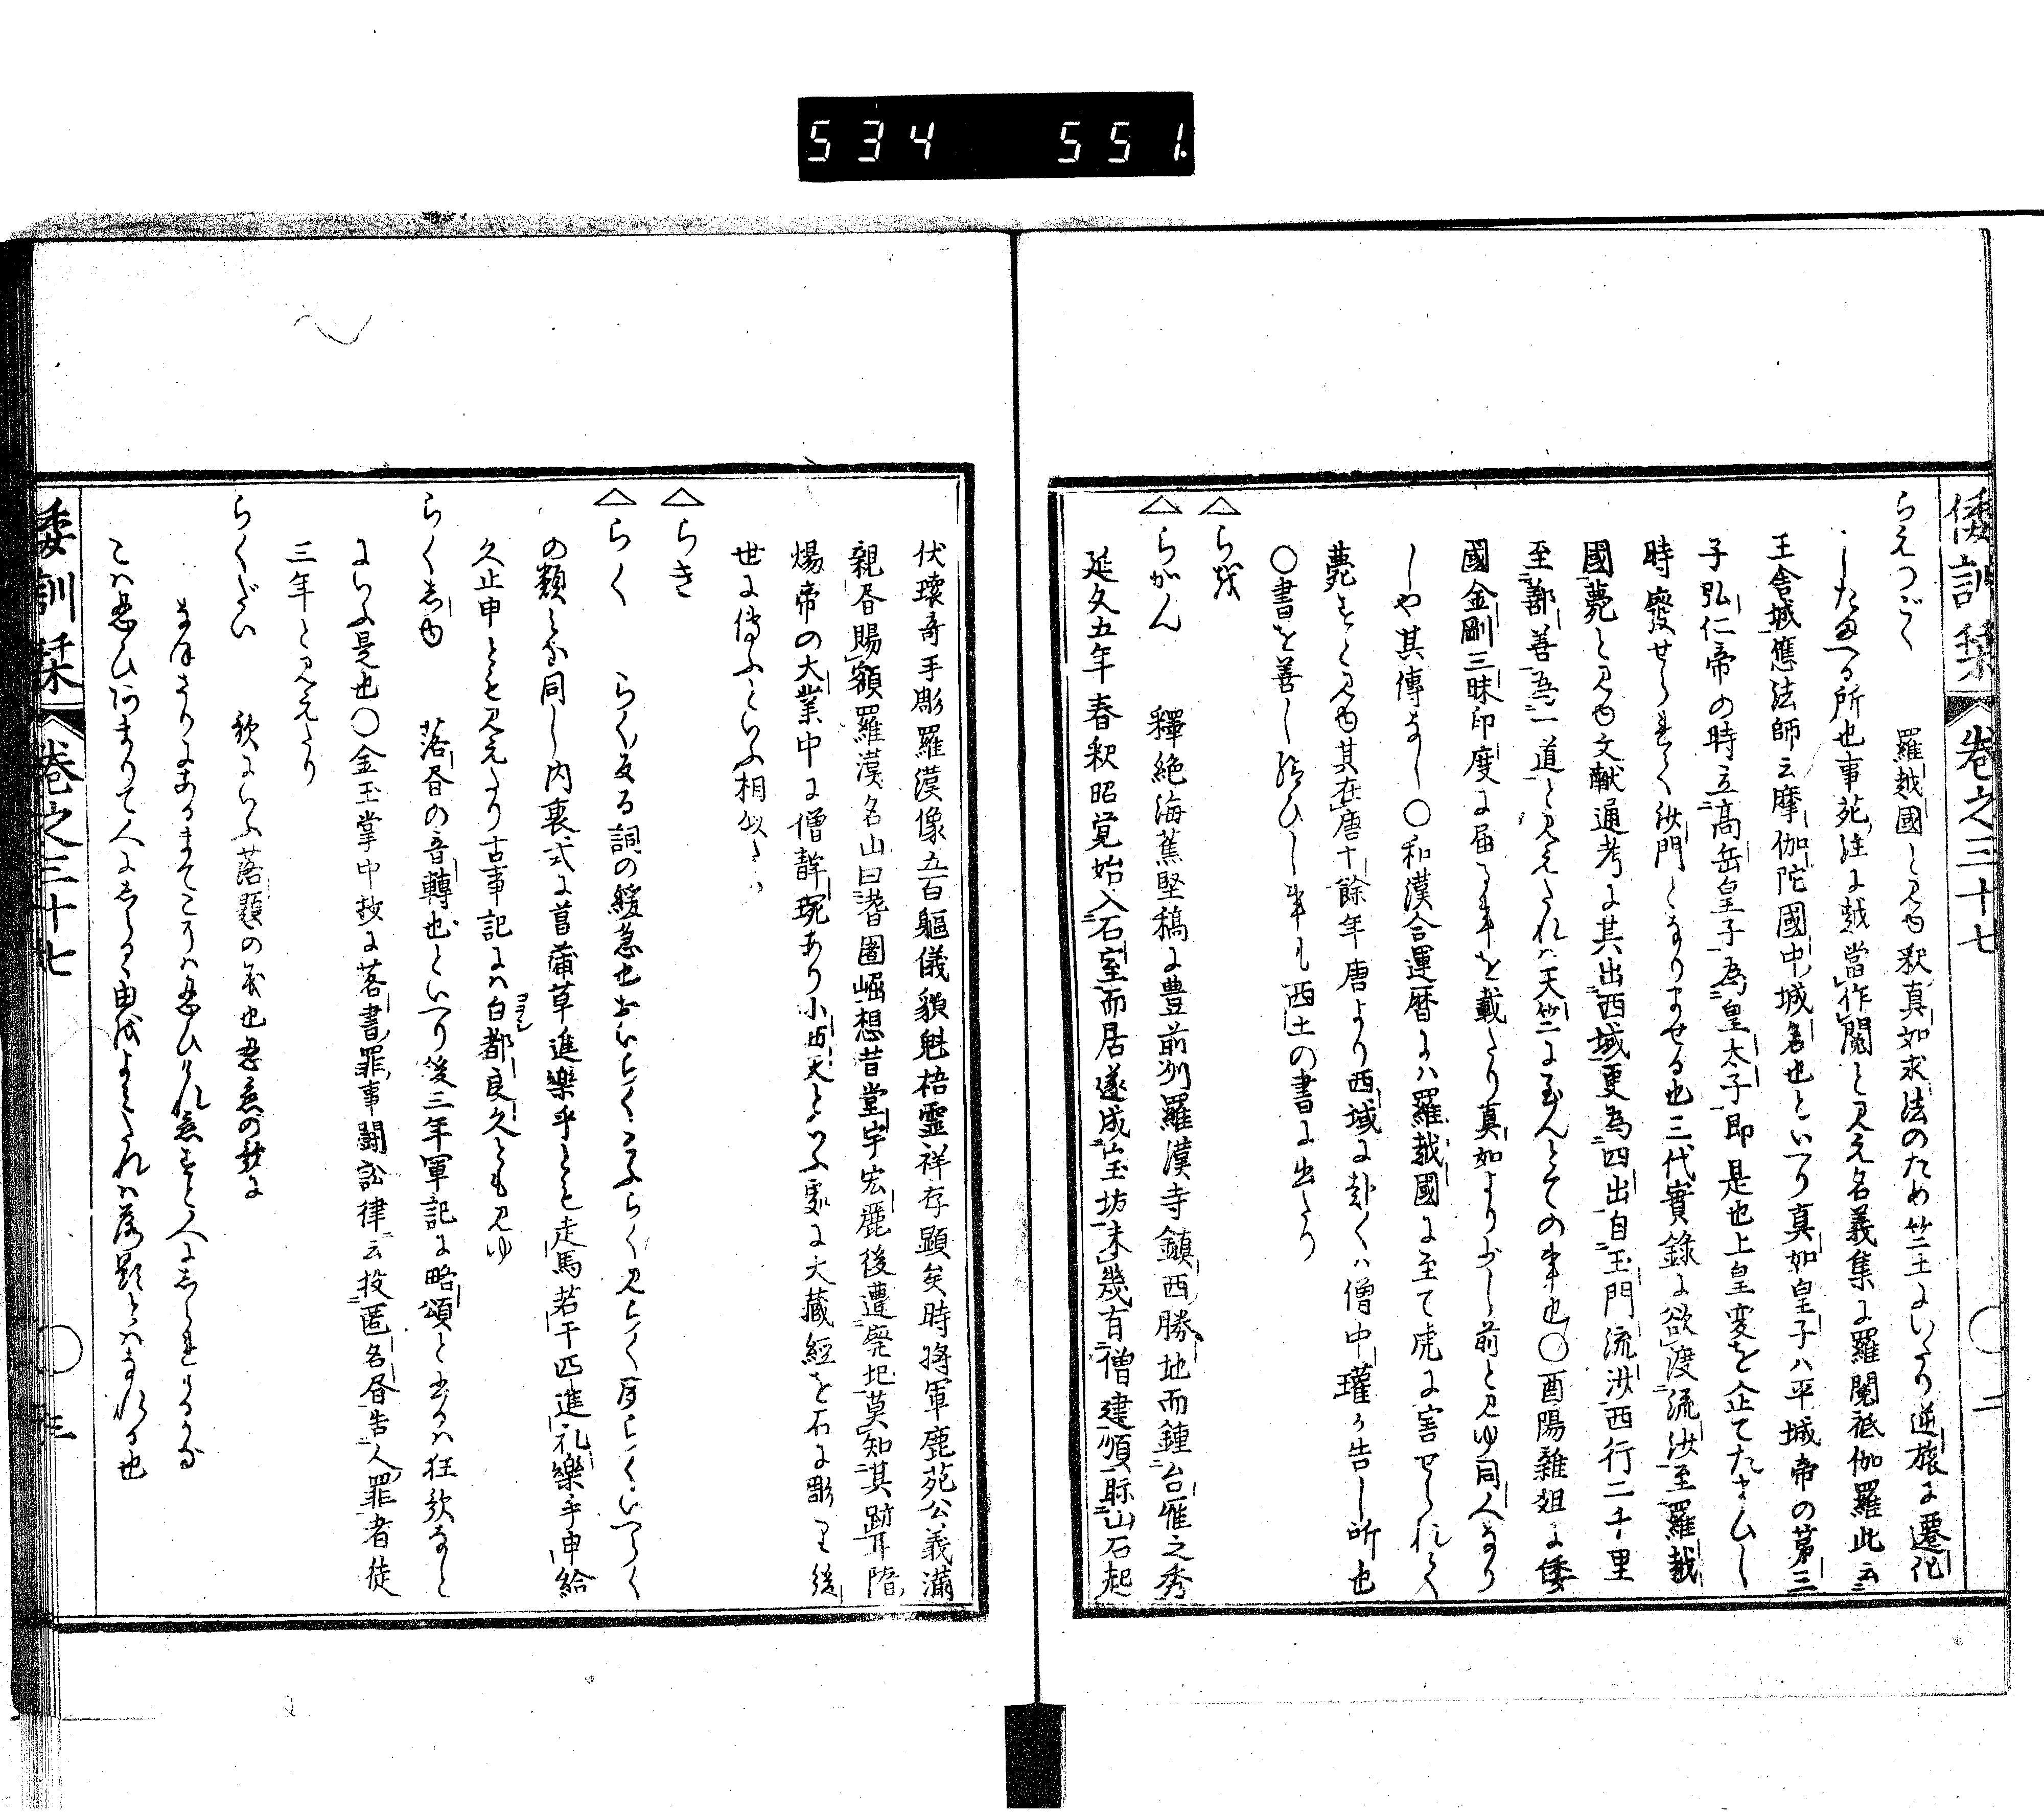 534 551
倭訓栞 巻之三十七 二
らえつごく 羅越國と見ゆ釈真如求法のため竺土にいたり逆旅に遷化
したまへる所也事苑注に越當作閲と見え名義集に羅閲祇伽羅此云
王舎城應法師云摩伽陀國中城名也といへり真如皇子ハ平城帝の第三
子弘仁帝の時立髙岳皇子為皇太子即是也上皇変を企てたまひし
時廢せられて沙門となりませる也三代實錄に欲渡流沙至羅越
國薨と見ゆ文献通考に其出西域更為四出自玉門流沙西行二千里
至鄯善為一道と見えたれハ天竺に至んとての事也〇酉陽雜俎に倭
國金剛三昧印度に届る事を載たり真如より少し前と見ゆ同人なり
しや其傳なし〇和漢合運暦にハ羅越國に至て虎に害せられて
薨すと見ゆ其在唐十餘年唐より西域に赴くハ僧中瓘か告し所也
〇書を善し給ひし事も西土の書に出たり
△らが
△らかん 釋絶海蕉堅稿に豊前州羅漢寺鎮西勝地而鍾台雁之秀
延文五年春釈昭覚始入石室而居遂成宝坊未幾有僧建順聆山石起
伏瓌奇手彫羅漢像五百軀儀貌魁梧靈祥存顕矣時将軍鹿苑公義滿
親昏賜額羅漢名山曰耆闍崛想昔堂宇宏麗後遭廃圮莫知其跡耳隋
煬帝の大業中に僧静琬あり小西天といふ處に大蔵経を石に彫りて後
世に傳ふといふ相似たり
△らき
△らく らくる詞の緩急也おいらくこふらく見らくくらくいへらく
の類みな同し内裏式に菖蒲草進樂乎とも走馬若干匹進礼樂乎申給
久止申とも見えたり古事記にハ白都良久とも見ゆ
らくしゆ 落昏の音轉也といへり後三年軍記に略頌と書るハ狂歌なと
にいふ是也〇金玉掌中抄に落書罪事闘訟律云投匿名昏告人罪者徒
三年と見えたり
らくだい 歌にいふ落題の義也忍恋の歌に
なほさりにあるまてこそハ忍ひけれ恋すと人にしられけるかな
こハ忍ひあまりて人にしらるゝ由をよみたれハ落題とハなれる也
倭訓栞 巻之三十七 三